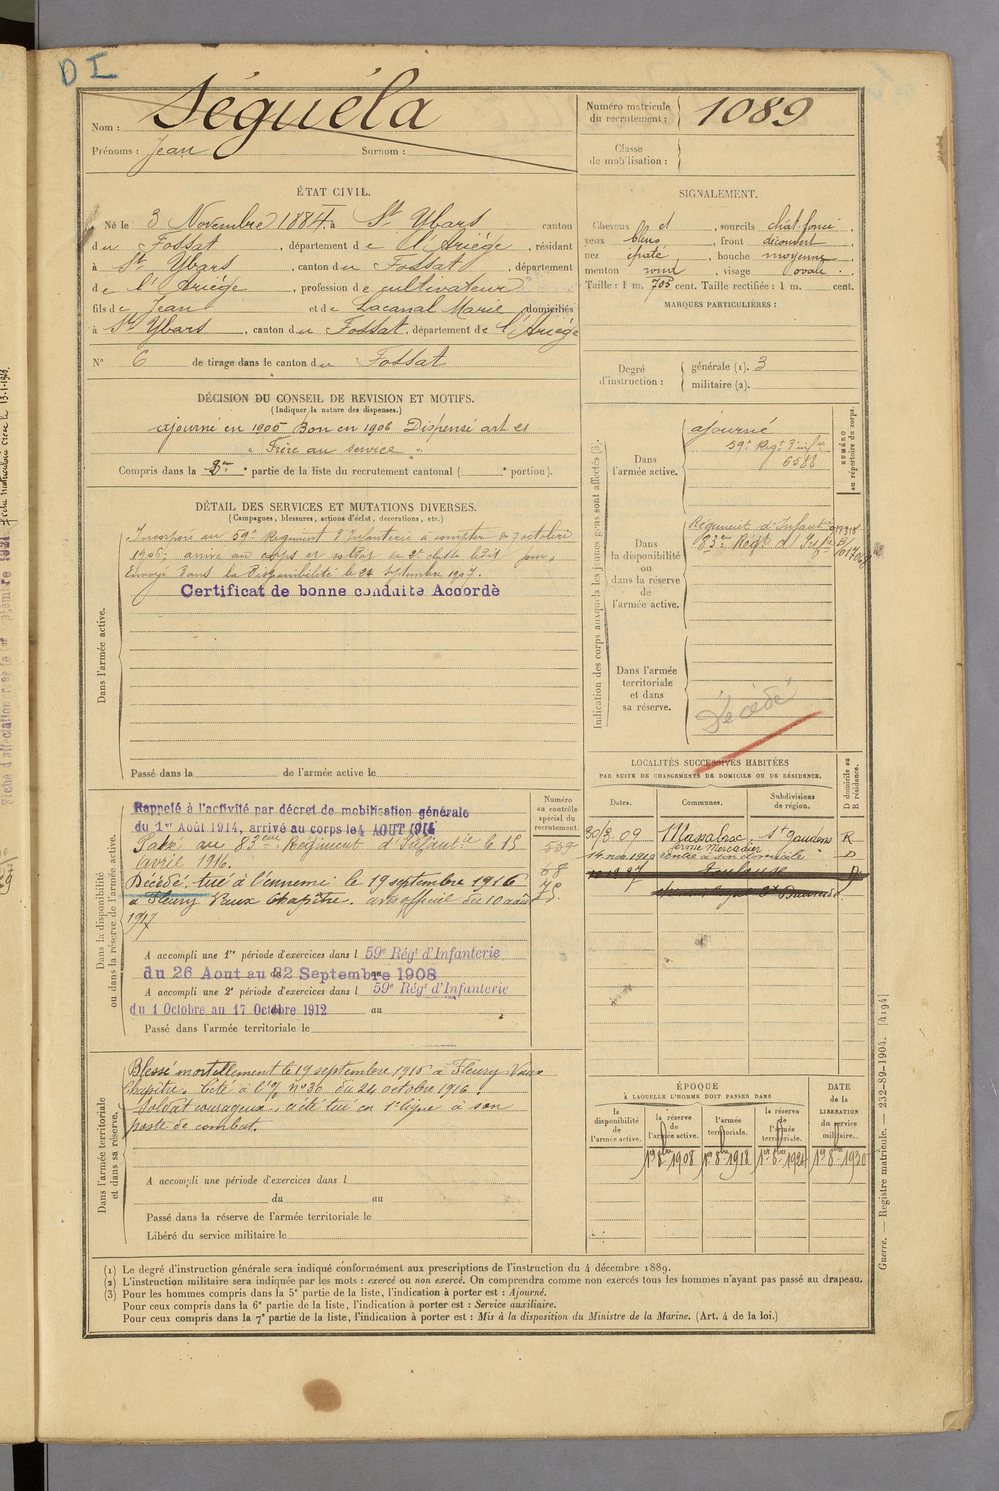 DI
Nom : Séguéla
Prénoms : Jean Surnom :
Numéro matricule du recrutement : 1089
Classe de mobilisation :
ÉTAT CIVIL.
Né le 3 Novembre 1884, à St Ybars canton
du Fossat, département de l'Ariège, résidant
à St Ybars, canton du Fossat, département
de l'Ariège, profession de cultivateur
fils de Jean et de Lacanal Marie, domiciliés
à St Ybars, canton du Fossat, département de l'Ariège
N° 6 de tirage dans le canton du Fossat
SIGNALEMENT.
Cheveux et, sourcils chât. foncé
yeux bleus, front découvert
nez épaté, bouche moyenne
menton rond, visage ovale.
Taille : 1 m. 705 cent. Taille rectifiée : 1 m. cent.
MARQUES PARTICULIÈRES :
Degré d'instruction : générale (1). 3
militaire (2).
DÉCISION DU CONSEIL DE REVISION ET MOTIFS.
(Indiquer la nature des dispenses.)
ajourné en 1905 Bon en 1906 Dispensé art 21
"Frère au service"
Compris dans la 2e partie de la liste du recrutement cantonal ( portion).
DÉTAIL DES SERVICES ET MUTATIONS DIVERSES.
(Campagnes, blessures, actions d'éclat, décorations, etc.)
Dans l'armée active.
Incorporé au 59e Régiment d'Infanterie à compter du 7 octobre
1906, arrivé au corps et soldat de 2e classe ledit jour.
Envoyé dans la Disponibilité le 24 septembre 1907.
Certificat de bonne conduite Accordé
Passé dans la de l'armée active le
Indication des corps auxquels les jeunes gens sont affectés (3).
NUMÉRO au répertoire du corps.
Dans l'armée active.
ajourné
59e Régt d'infie
6088
Dans la disponibilité ou dans la réserve de l'armée active.
Régiment d'Infantie
83e Régt d'Infie
Dans l'armée territoriale et dans sa réserve.
Décédé
LOCALITÉS SUCCESSIVES HABITÉES
PAR SUITE DE CHANGEMENTS DE DOMICILE OU DE RÉSIDENCE.
D domicile ou R résidence.
Dates. Communes. Subdivisions de région.
30/3.09 Massabrac St Gaudens R
ferme Mercadier
14 nov. 1910 rentré à son domicile D
Toulouse
Dans la disponibilité ou dans la réserve de l'armée active.
Numéro au contrôle spécial du recrutement
539
68
75
Rappelé à l'activité par décret de mobilisation générale
du 1er Août 1914, arrivé au corps le 4 AOUT 1914
Passé au 83eme Régiment d'Infantie le 15
avril 1916.
Décédé, tué à l'ennemi le 19 septembre 1916
à Fleury Vaux Chapitre. avis officiel du 10 août
1917
A accompli une 1re période d'exercices dans l 59e Régt d'Infanterie
du 26 Aout au 22 Septembre 1908
A accompli une 2e période d'exercices dans l 59e Régt d'Infanterie
du 1 Octobre au 17 Octobre 1912 au
Passé dans l'armée territoriale le
Dans l'armée territoriale et dans sa réserve.
Blessé mortellement le 19 septembre 1916 à Fleury Vaux
Chapitre. Cité à l'O/ n° 36 du 24 octobre 1916.
Soldat courageux, a été tué en 1e ligne à son
poste de combat.
A accompli une période d'exercices dans l
du au
Passé dans la réserve de l'armée territoriale le
Libéré du service militaire le
ÉPOQUE
À LAQUELLE L'HOMME DOIT PASSER DANS
la disponibilité de l'armée active.
la réserve de l'armée active.
l'armée territoriale.
la réserve de l'armée territoriale.
DATE de la LIBÉRATION du service militaire.
1er 8bre 1908 1er 8bre 1918 1er 8bre 1924 1er 8bre 1930
(1) Le degré d'instruction générale sera indiqué conformément aux prescriptions de l'instruction du 4 décembre 1889.
(2) L'instruction militaire sera indiquée par les mots : exercé ou non exercé. On comprendra comme non exercés tous les hommes n'ayant pas passé au drapeau.
(3) Pour les hommes compris dans la 5e partie de la liste, l'indication à porter est : Ajourné.
Pour ceux compris dans la 6e partie de la liste, l'indication à porter est : Service auxiliaire.
Pour ceux compris dans la 7e partie de la liste, l'indication à porter est : Mis à la disposition du Ministre de la Marine. (Art. 4 de la loi.)
Guerre. — Registre matricule. — 232-89-1904. [4194]